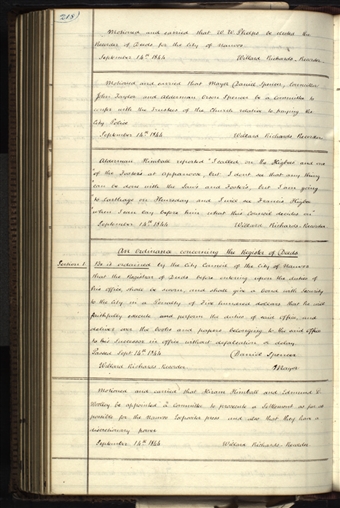 218
Motioned and carried that W. W. Phelps be elected the
Recorder of Deeds for the City of Nauvoo
September 14th 1844 Willard Richards, Recorder
Motioned and carried that Mayor Daniel Spencer, Councillor
John Taylor and Alderman Orson Spencer be a Committee to
confer with the Trustees of the Church relative to paying the
City Police
September 14th 1844 Willard Richards, Recorder
Alderman Kimball reported "I called on Mr Higbee and one
of the Fosters at appanoose, but I dont see that any thing
can be done with the Laws and Fosters, but I am going
to Carthage on Thursday and I will see Francis Higbee
when I will lay before him what this Council decides on"
September 14th 1844 Willard Richards, Recorder
An Ordinance concerning the Register of Deeds
Section 1. Be it ordained by the City Council of the City of Nauvoo
that the Registers of Deeds before entering upon the duties of
his office, shall be sworn, and shall give a bond with Security
to the City in a Penalty of Five hundred dollars that he will
faithfully execute and perform the duties of said office, and
deliver over the books and papers belonging to the said office
to his Successor in office without defalcation or delay.
Passed Sept. 14th 1844 Daniel Spencer
Willard Richards Recorder Mayor
Motioned and carried that Hiram Kimball and Edmund
be appointed a Committee to prosecute a Settlement as far as
possible for the Nauvoo Expositor press and also that they have a
discretionary power
September 14th 1844 Willard Richards, Recorder